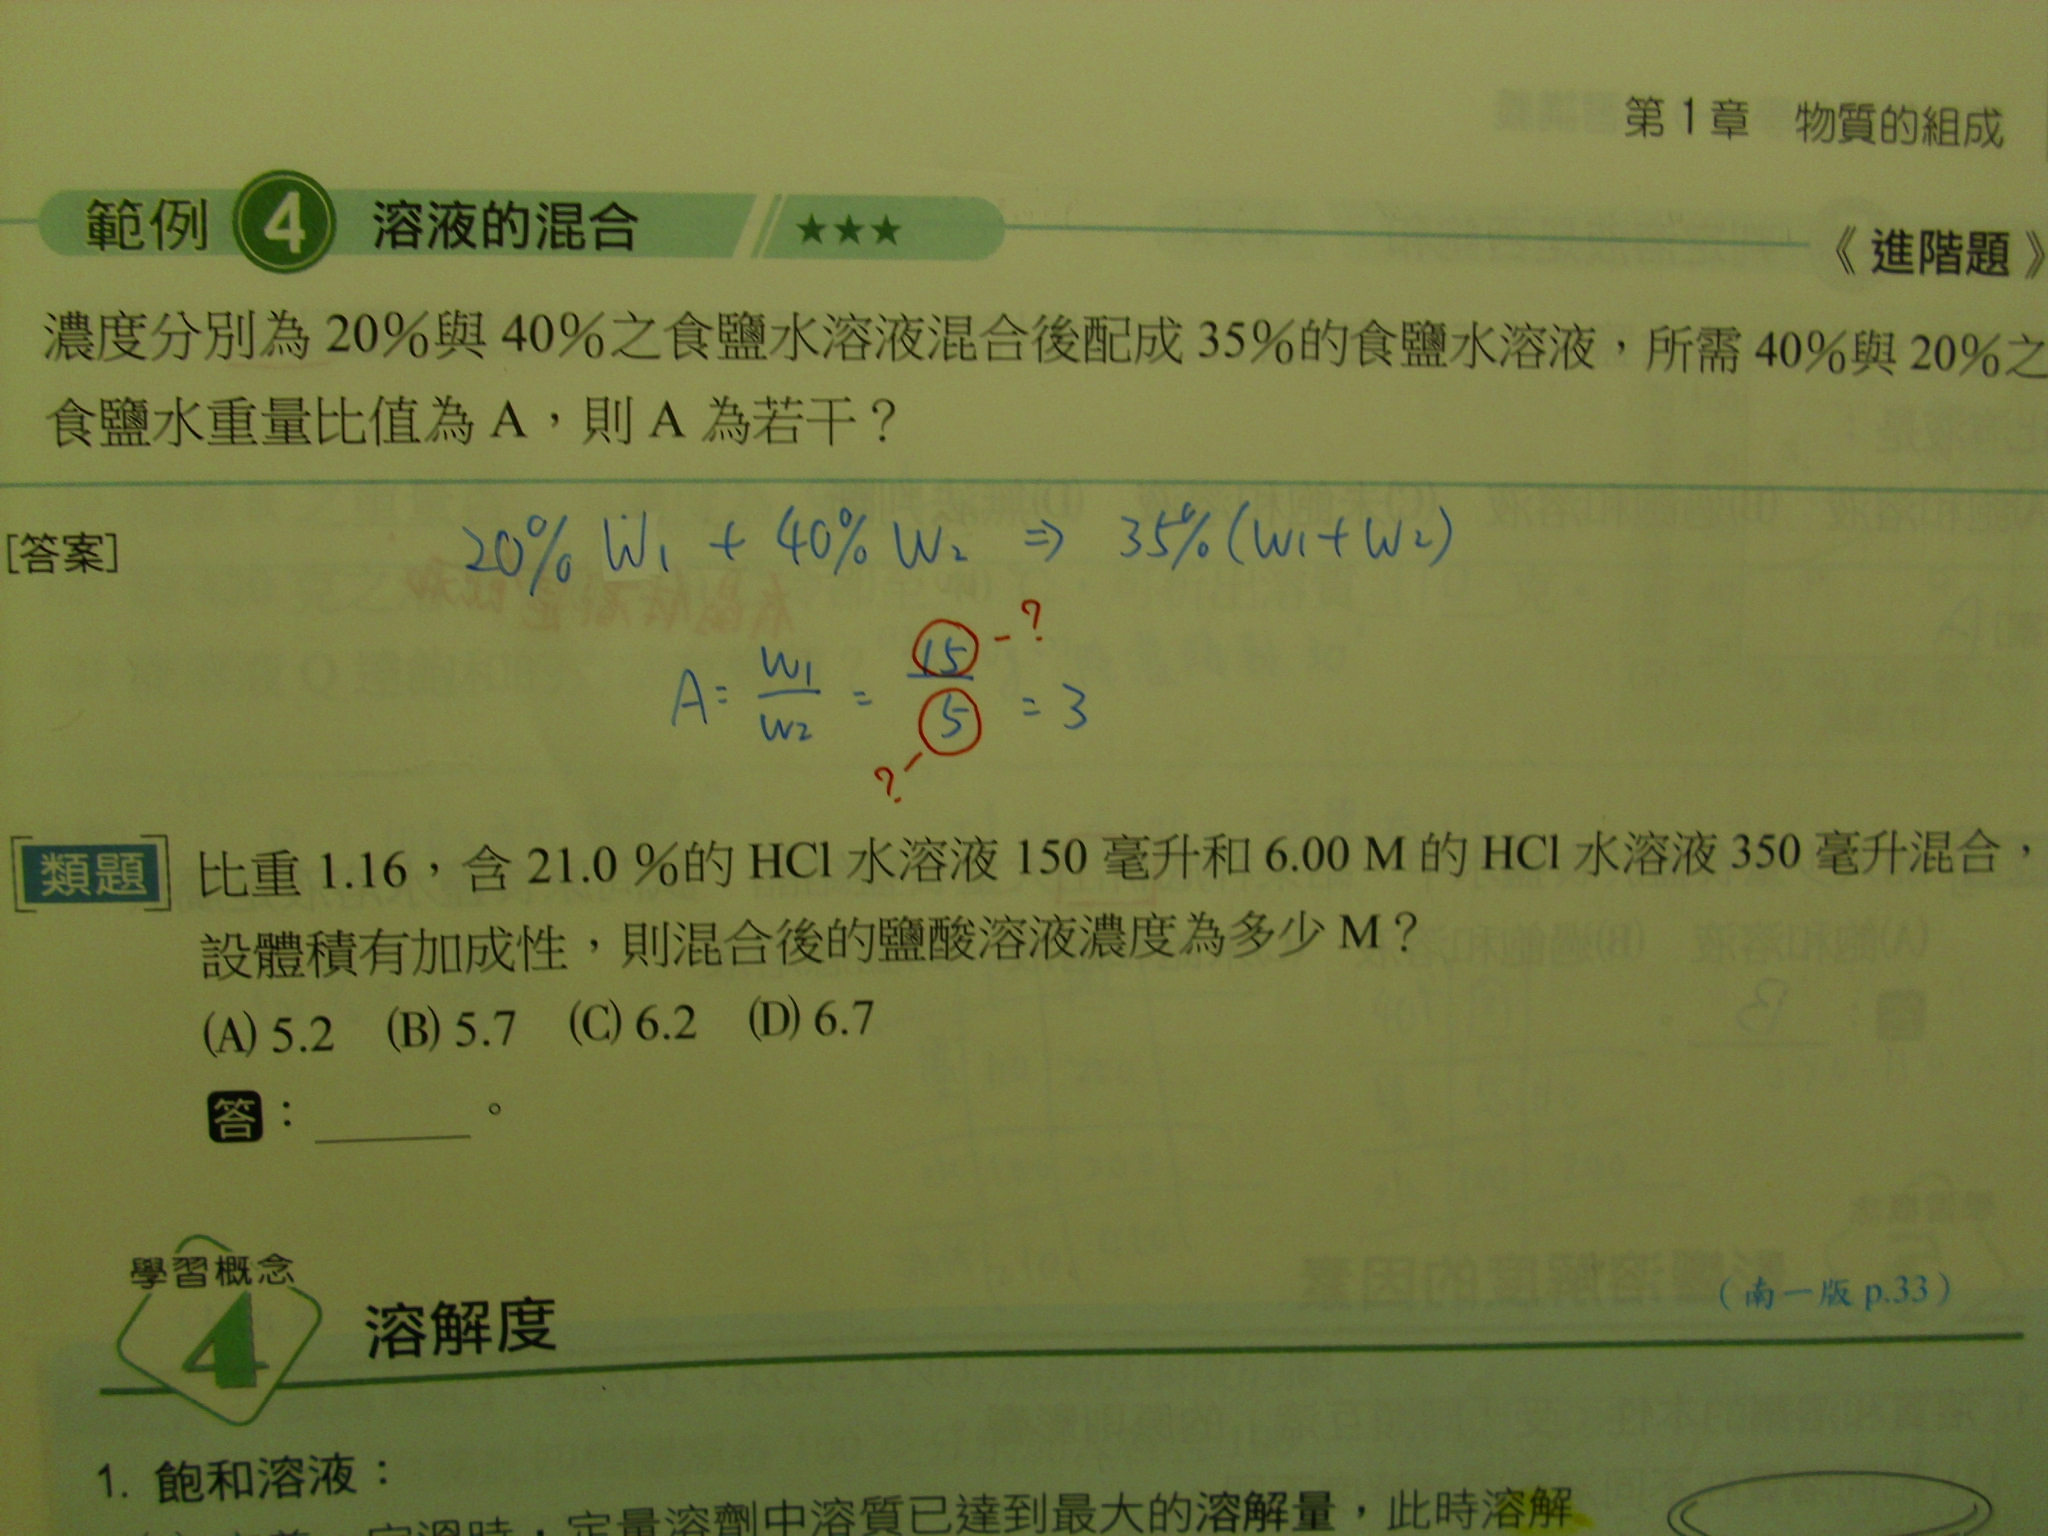 第1章 物質的組成
範例 4 溶液的混合 ★★★
《進階題》
濃度分別為 20%與 40%之食鹽水溶液混合後配成 35%的食鹽水溶液,所需 40%與 20%之
食鹽水重量比值為 A,則 A 為若干?
[答案] 20% W1 + 40% W2 ⇒ 35% (W1+W2)
A = W1/W2 = 15/5 = 3
?
?
[類題] 比重 1.16,含 21.0 %的 HCl 水溶液 150 毫升和 6.00 M 的 HCl 水溶液 350 毫升混合,
設體積有加成性,則混合後的鹽酸溶液濃度為多少 M?
(A) 5.2 (B) 5.7 (C) 6.2 (D) 6.7
答:______。
學習概念
4 溶解度
(南一版 p.33)
1. 飽和溶液:
定量溶劑中溶質已達到最大的溶解量,此時溶解